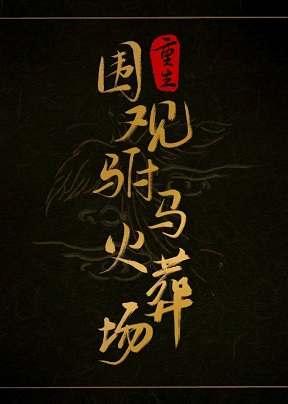 重生
围观驸马火葬场